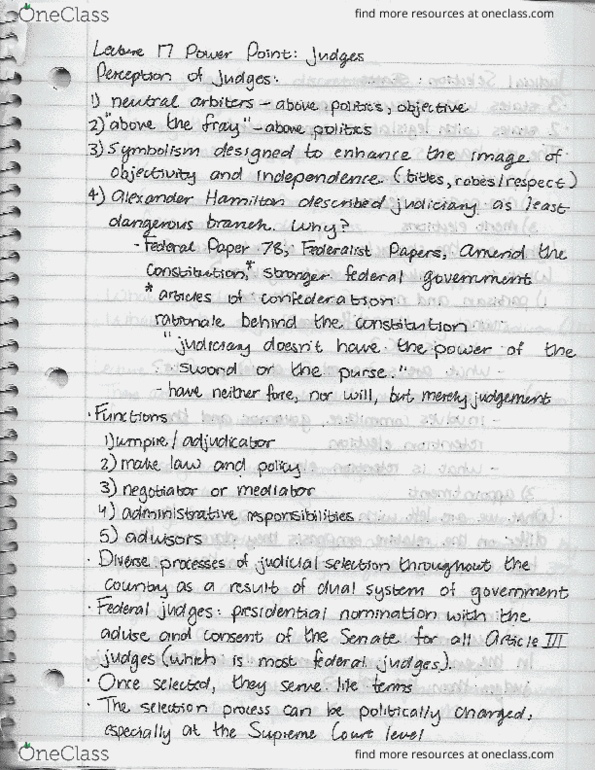 OneClass
find more resources at oneclass.com
Lecture 17 Power Point: Judges
Perception of judges:
1) neutral arbiters - above politics, objective
2) "above the fray" - above politics
3) Symbolism designed to enhance the image of
objectivity and independence. (titles, robes/respect)
4) Alexander Hamilton described judiciary as least
dangerous branch. Why?
- Federal Paper 78, Federalist Papers, amend the
constitution,* stronger federal government
* articles of confederation
rationale behind the constitution
"judiciary doesn't have the power of the
sword or the purse."
- have neither force, nor will, but merely judgement
· Functions
1) umpire / adjudicator
2) make law and policy
3) negotiator or mediator
4) administrative responsibilities
5) advisors
· Diverse processes of judicial selection throughout the
country as a result of dual system of government
· Federal judges: presidential nomination with the
advise and consent of the Senate for all Article III
judges (which is most federal judges).
· Once selected, they serve life terms
· The selection process can be politically charged,
especially at the Supreme Court level
OneClass
find more resources at oneclass.com